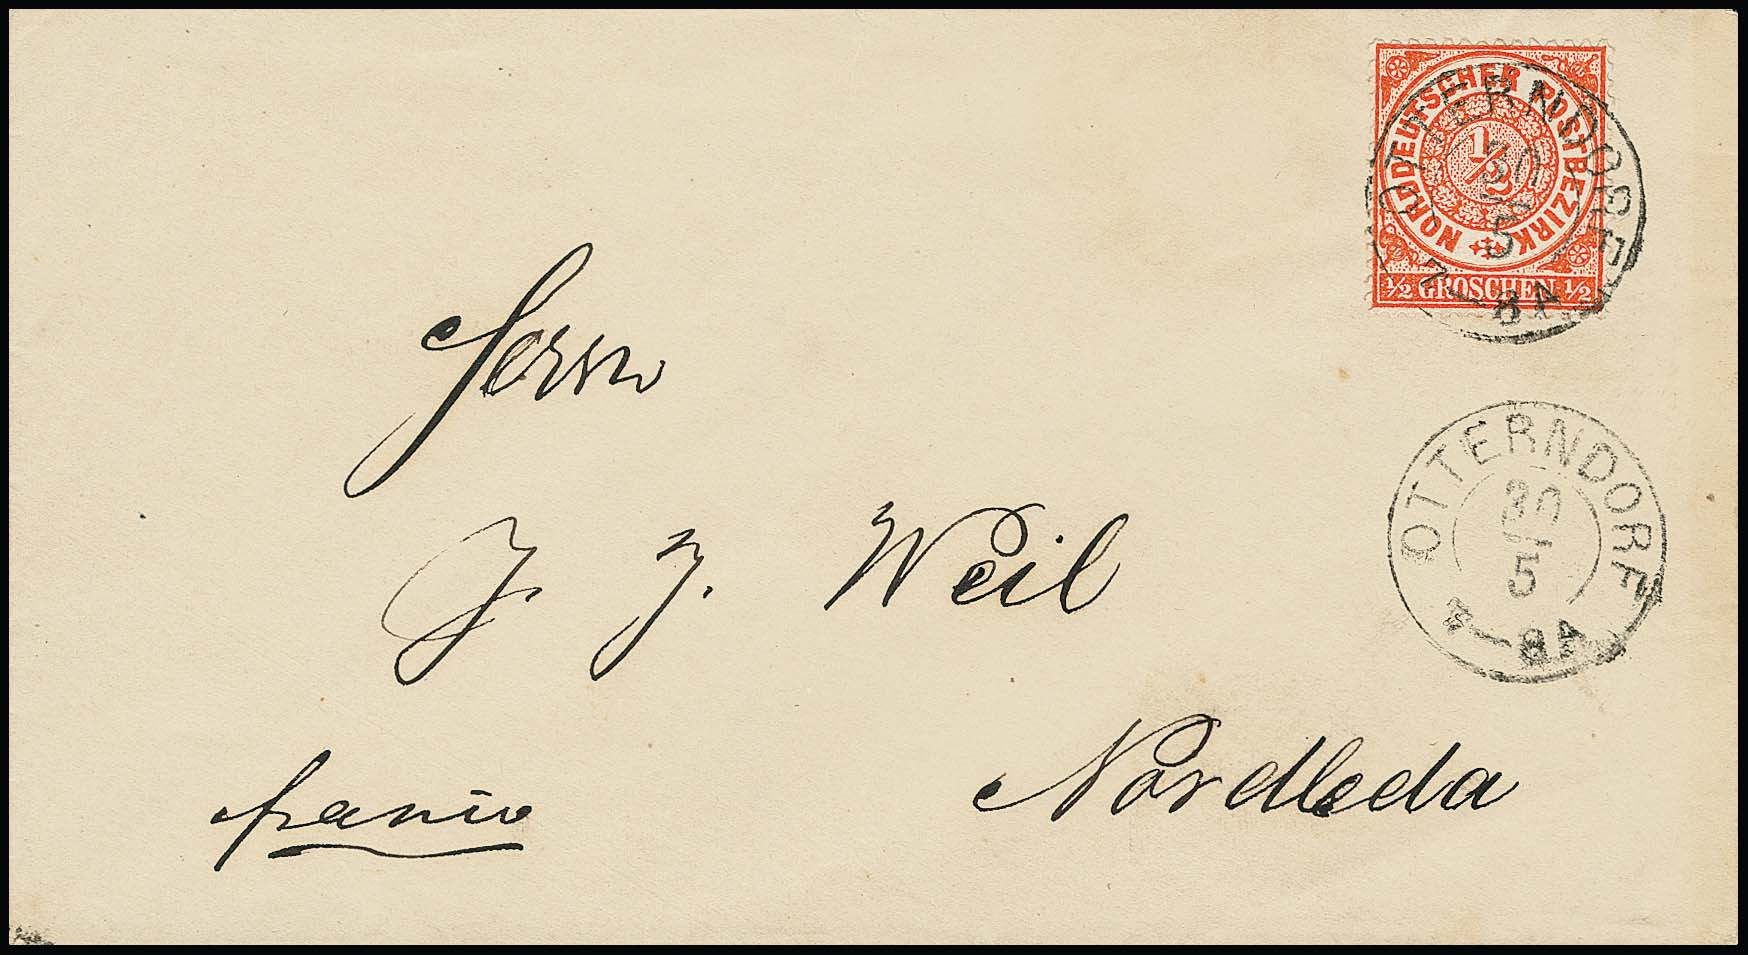 NORDDEUTSCHER POSTBEZIRK
1/2
½ GROSCHEN ½
OTTERNDORF
30
5
7-8A
OTTERNDORF
30
5
7-8A
Herrn
J. J. Weil
Nordleda
franco